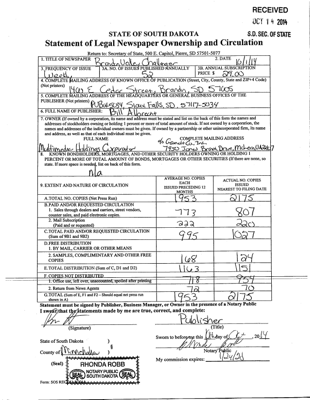 RECEIVED
OCT 14 2014
S.D. SEC. OF STATE
STATE OF SOUTH DAKOTA
Statement of Legal Newspaper Ownership and Circulation
Return to: Secretary of State, 500 E. Capitol, Pierre, SD 57501-5077
1. TITLE OF NEWSPAPER Brandon Valley Challenger 2. DATE 10/1/14
3. FREQUENCY OF ISSUE Weekly 3A. NO. OF ISSUES PUBLISHED ANNUALLY 52 3B. ANNUAL SUBSCRIPTION PRICE $ 29.00
4. COMPLETE MAILING ADDRESS OF KNOWN OFFICE OF PUBLICATION (Street, City, County, State and ZIP+4 Code)
(Not printers) E. Cedar Street, Brandon, SD 57005
5. COMPLETE MAILING ADDRESS OF THE HEADQUARTERS OR GENERAL BUSINESS OFFICES OF THE
PUBLISHER (Not printer) Sioux Falls, SD 57117-5034
6. FULL NAME OF PUBLISHER Bill Albrecht
7. OWNER (If owned by a corporation, its name and address must be stated and list on the back of this form the names and
addresses of stockholders owning or holding 1 percent or more of total amount of stock. If not owned by a corporation, the
names and addresses of the individual owners must be given. If owned by a partnership or other unincorporated firm, its name
and address, as well as that of each individual must be given.
FULL NAME COMPLETE MAILING ADDRESS
Multimedia Holdings Corporation
8. KNOWN BONDHOLDERS, MORTGAGEES, AND OTHER SECURITY HOLDERS OWNING OR HOLDING 1
PERCENT OR MORE OF TOTAL AMOUNT OF BONDS, MORTGAGES OR OTHER SECURITIES (If there are none, so
state. If more space is needed, list on back of this form.
n/a
9. EXTENT AND NATURE OF CIRCULATION
AVERAGE NO. COPIES EACH ISSUED PRECEDING 12 MONTHS
ACTUAL NO. COPIES ISSUED NEAREST TO FILING DATE
A. TOTAL NO. COPIES (Net Press Run) 1953 2175
B. PAID AND/OR REQUESTED CIRCULATION
1. Sales through dealers and carriers, street vendors, counter sales, and paid electronic copies. 773 807
2. Mail Subscription (Paid and/or requested) 222 220
C. TOTAL PAID AND/OR REQUESTED CIRCULATION (Sum of 9B1 and 9B2) 995 1027
D. FREE DISTRIBUTION
1. BY MAIL, CARRIER OR OTHER MEANS
2. SAMPLES, COMPLIMENTARY AND OTHER FREE COPIES 168 124
E. TOTAL DISTRIBUTION (Sum of C, D1 and D2) 1163 1151
F. COPIES NOT DISTRIBUTED
1. Office use, left over, unaccounted, spoiled after printing 718 954
2. Return from News Agents 72 70
G. TOTAL (Sum of E, F1 and F2 - Should equal net press run shown in A) 1953 2175
Statement must be signed by Publisher, Business Manager, or Owner in the presence of a Notary Public
I swear that the statements made by me are true, correct, and complete:
Publisher
(Signature) (Title)
State of South Dakota )
County of Minnehaha )
Sworn to before me this
Notary Public
(Seal)
RHONDA ROBB
NOTARY PUBLIC
SOUTH DAKOTA
My commission expires: